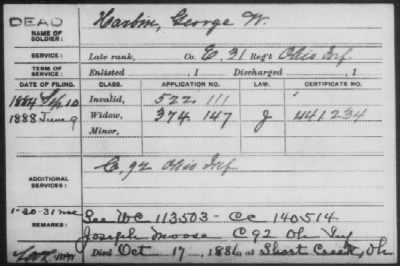 DEAD
NAME OF SOLDIER: Harbin, George W.
SERVICE: Late rank, Co. E, 31 Reg't Ohio Inf.
TERM OF SERVICE: Enlisted , 1 Discharged , 1
DATE OF FILING. CLASS. APPLICATION NO. LAW. CERTIFICATE NO.
1884 Sep 10 Invalid, 522 111
1888 June 9 Widow, 374 147 J 441234
Minor,
ADDITIONAL SERVICES: C, 92 Ohio Inf
1-20-31
REMARKS: See WC 113503 - CC 140514
Joseph Moose C 92 Oh Inf
Died Oct 17, 1886 at Short Creek, Oh